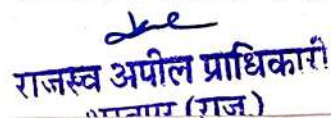 राजस्व अपील प्राधिकारी
(राज.)